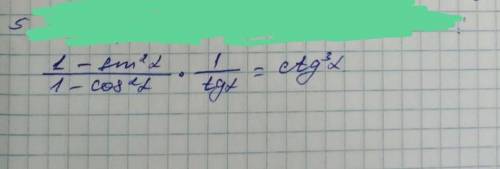 5
(1 - sin²α)/(1 - cos²α) · 1/tgα = ctg³α